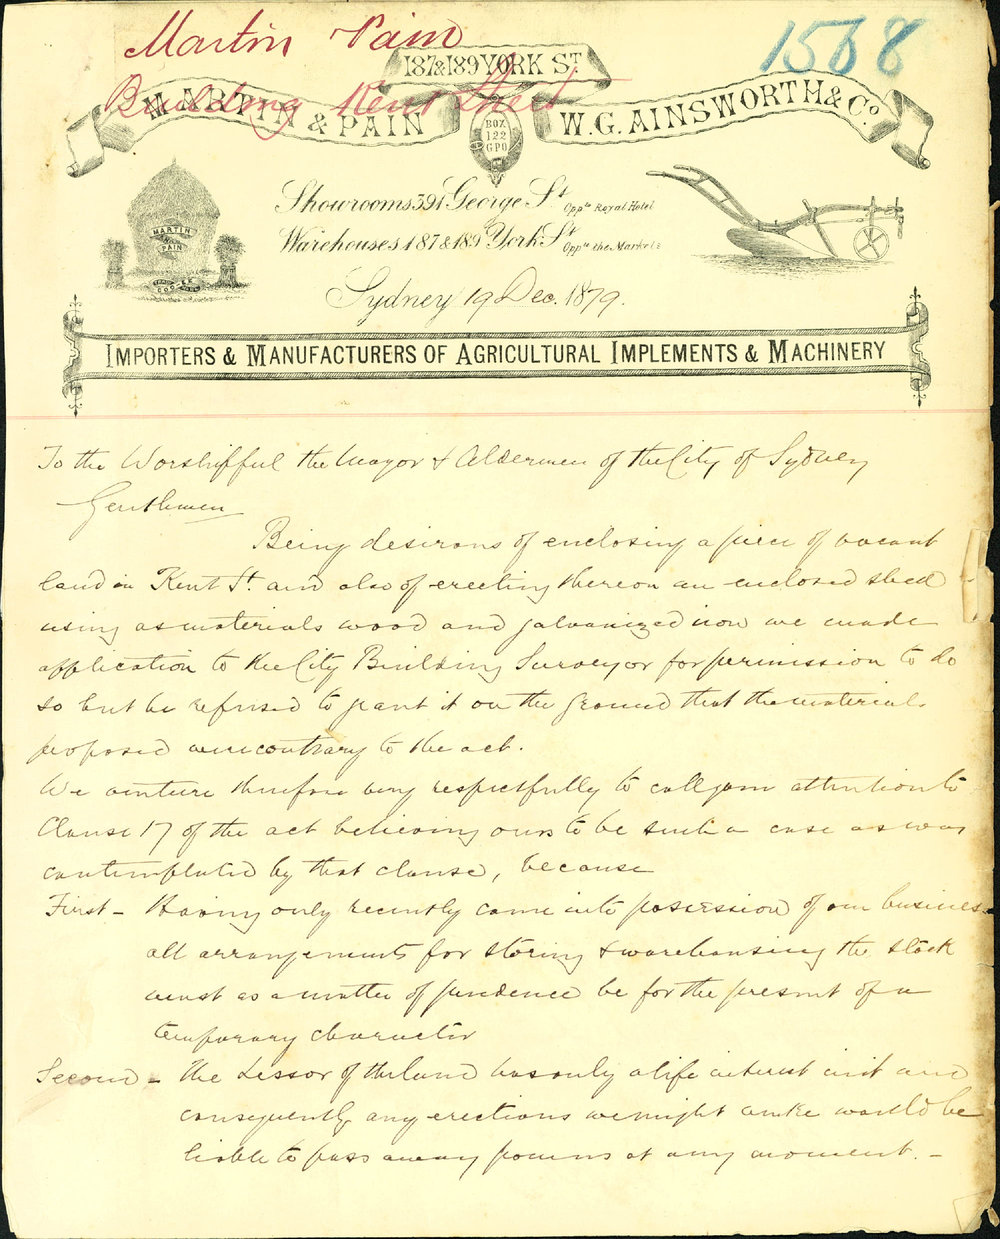 Martin Pain
1568
Building Kent Street
187 & 189 YORK ST.
MARTIN & PAIN
W. G. AINSWORTH & Co.
BOX 122 GPO
Showrooms 391 George St. Oppte Royal Hotel
Warehouses 187 & 189 York St. Oppte the Markets
MARTIN
PAIN
Sydney 19 Dec. 1879.
IMPORTERS & MANUFACTURERS OF AGRICULTURAL IMPLEMENTS & MACHINERY
To the Worshipful the Mayor & Aldermen of the City of Sydney
Gentlemen
Being desirous of enclosing a piece of vacant
land in Kent St. and also of erecting thereon an enclosed shed
using as materials wood and galvanized iron we made
application to the City Building Surveyor for permission to do
so but he refused to grant it on the ground that the materials
proposed were contrary to the act.
We venture therefore very respectfully to call your attention to
Clause 17 of the act believing ours to be such a case as was
contemplated by that clause, because
First - Having only recently come into possession of our business
all arrangements for storing & warehousing the stock
must as a matter of prudence be for the present of a
temporary character
Second - The Lessor of the land has only a life interest in it and
consequently any erections we might make would be
liable to pass away from us at any moment. -